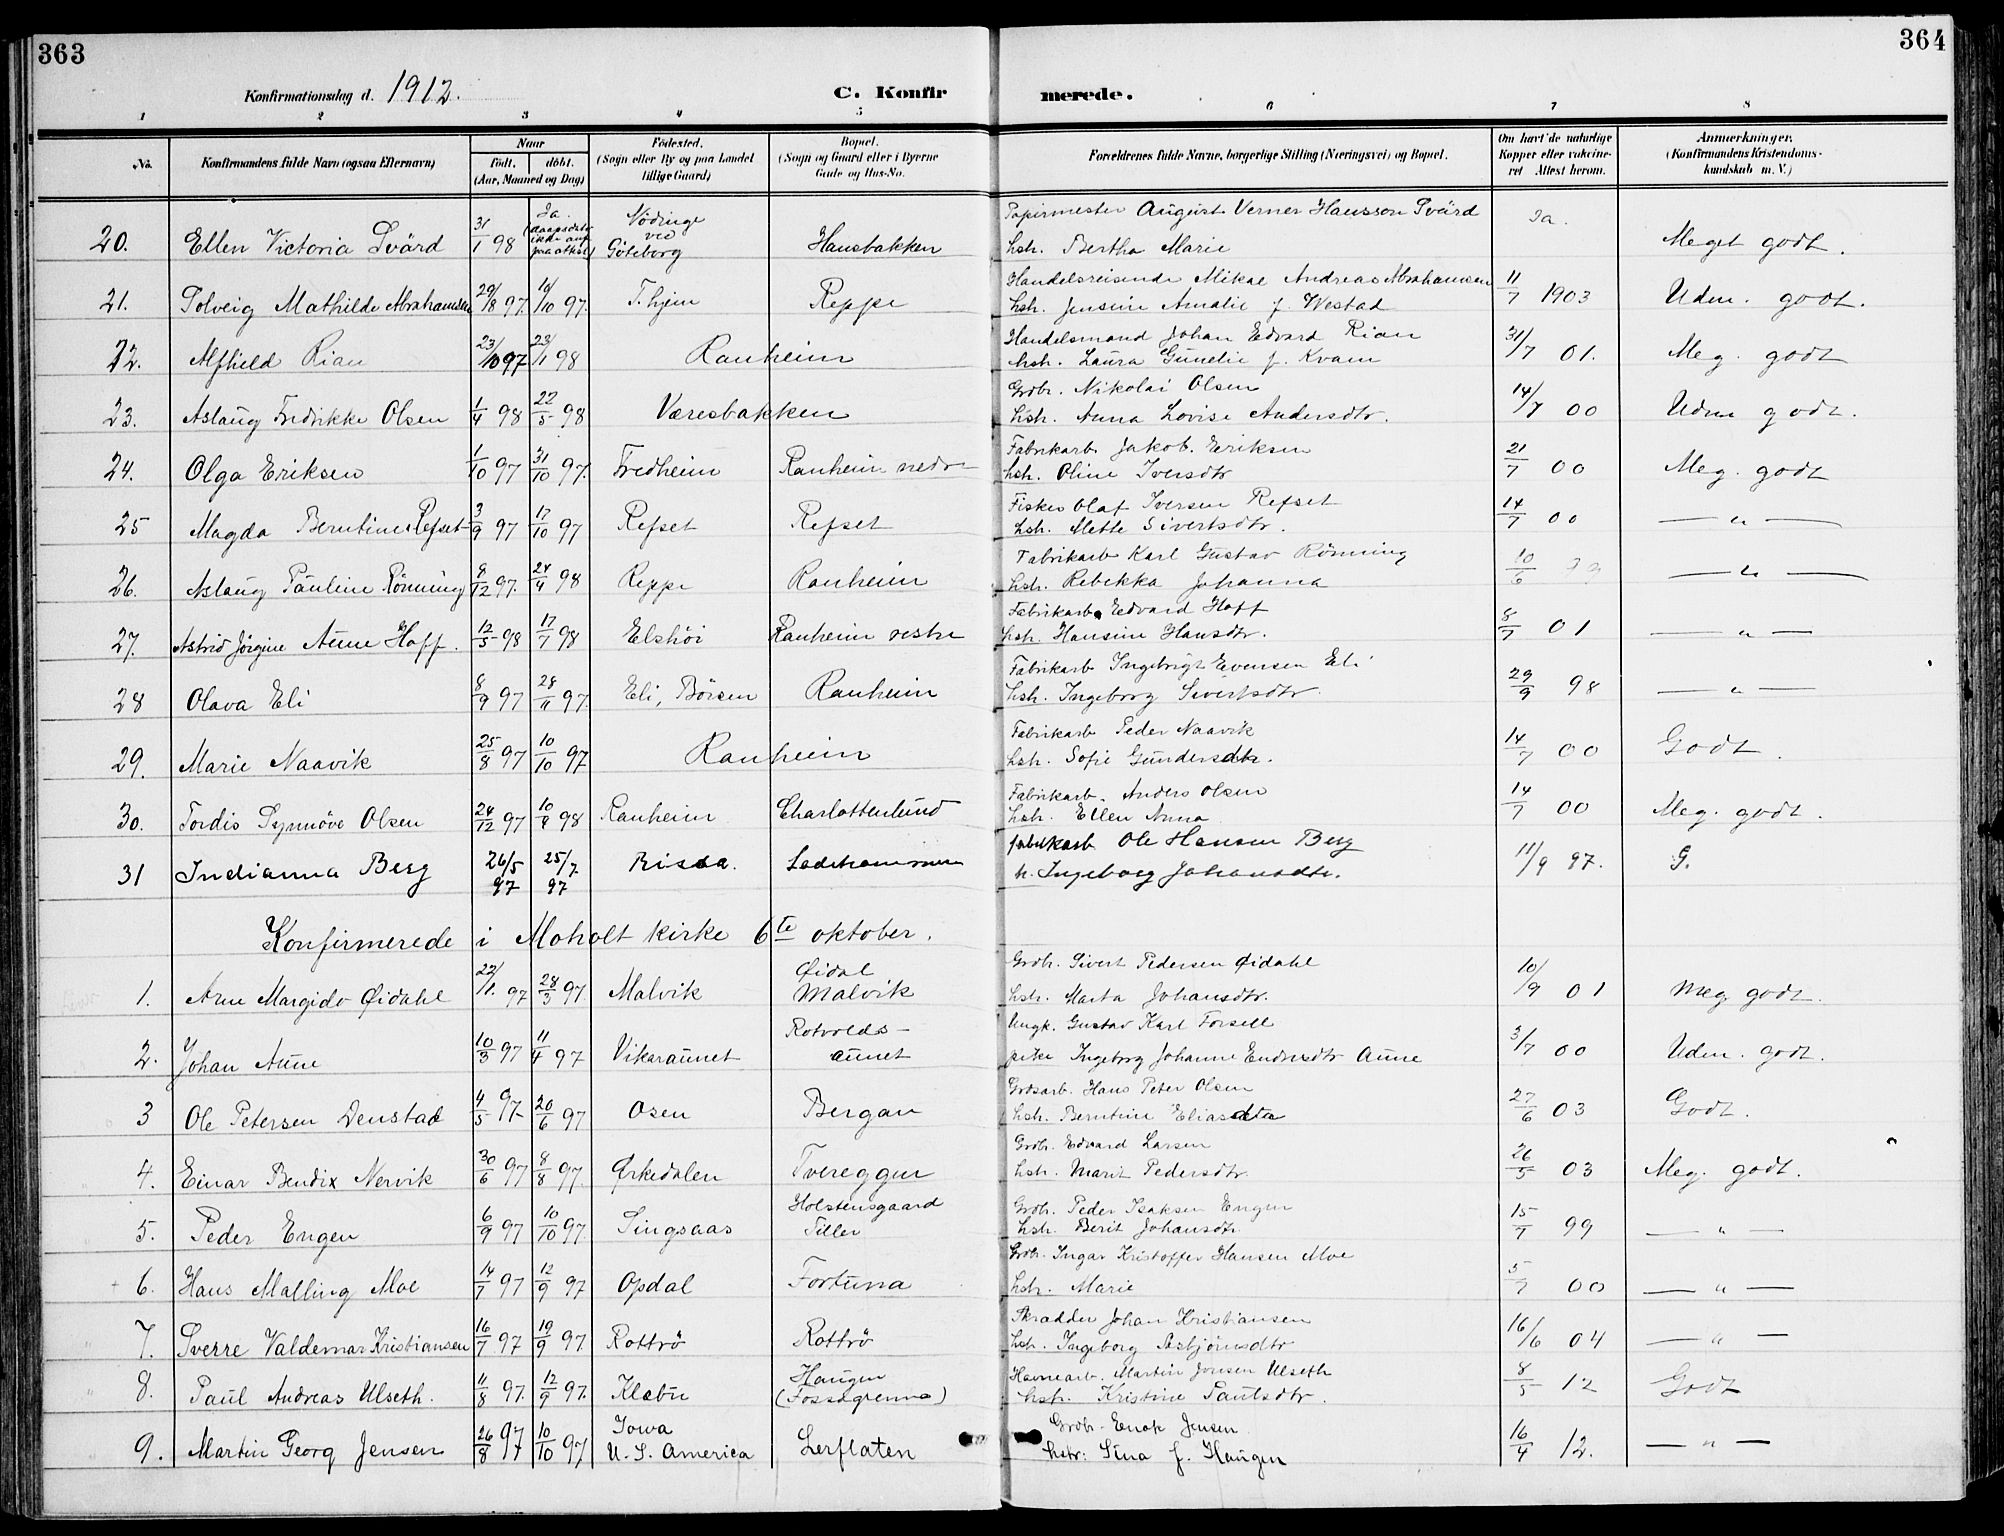 363
364
Konfirmationsdag d. 1912.
C. Konfir
merede.
1 2 3 4 5 6 7 8
No. Konfirmandens fulde Navn (ogsaa Efternavn) Naar født. døbt. (Aar, Maaned og Dag) Fødested. (Sogn eller By og paa Landet tillige Gaard) Bopæl. (Sogn og Gaard eller i Byerne Gade og Hus-No. Forældrenes fulde Navne, borgerlige Stilling (Næringsvei) og Bopæl. Om havt de naturlige Kopper eller vaccineret Attest herom. Anmærkninger. (Konfirmandens Kristendomskundskab m. V.)
20. Ellen Victoria Svärd 31/1 98 Ja. (daapsdato ikke anf. paa attest) Nödinge ved Göteborg Hansbakken Papirmester August Verner Hansson Svärd hstr. Bertha Marie Ja. Meget godt.
21. Solveig Mathilde Abrahamsen 29/8 97. 14/10 97. T.hjem Reppe Handelsreisende Mikae Andreas Abrahamsen hstr. Jensine Amalie f. Westad 11/7 1903 Udm. godt.
22. Alfhild Rian 23/10 97 23/1 98 Ranheim Handelsmand Johan Edvard Rian hstr. Laura Gunelie f. Kvam 31/7 01. Meg. godt
23. Aslaug Fredrikke Olsen 1/4 98 22/5 98 Væresbakken Grdbr. Nikolai Olsen hstr. Anna Lovise Andersdtr. 14/7 00 Udm godt.
24. Olga Eriksen 1/10 97 31/10 97. Fredheim Ranheim nedre Fabrikarb. Jakob Eriksen hstr. Oline Iversdtr 21/7 00 Meg. godt
25 Magda Berntine Refset 3/9 97 17/10 97 Refset Refset Fisker Olaf Iversen Refset hstr. Mette Sivertsdtr. 14/7 00 — " —
26. Aslaug Pauline Rönning 8/12 97. 24/4 98 Reppe Ranheim Fabrikarb Karl Gustav Rönning hstr. Rebekka Johanna 10/6 99 — " —
27. Astrid Jörgine Aune Hoff. 12/5 98 17/7 98 Elshöi Ranheim vestre Fabrikarb. Edvard Hoff hstr. Hansine Hansdtr. 8/7 01 — " —
28 Olava Eli 8/9 97 28/11 97. Eli, Börsen Ranheim Fabrikarb Ingebrigt Evensen Eli hstr. Ingeborg Sivertsdtr. 29/9 98 — " —
29. Marie Naavik 25/8 97 10/10 97 Ranheim Fabrikarb Peder Naavik hstr. Sofie Gundersdtr. 14/7 00 Godt
30. Tordis Synnöve Olsen 24/12 97 10/4 98 Ranheim Charlottenlund Fabrikarb. Anders Olsen hstr. Ellen Anna 14/7 00 Meg. godt.
31 Indianna Berg 26/5 97 25/7 97 Rissa. Ladehammeren fabrikarb Ole Hansen Berg h. Ingeborg Johansdtr. 11/9 97. G.
Konfirmerede i Moholt kirke 6te oktober.
1. Arne Margido Øidahl 22/1. 97 28/3 97. Malvik Øidal Malvik Grdb. Sivert Pedersen Øidahl hstr. Marta Johansdtr. 10/9 01 Meg godt.
2. Johan Aune 10/3 97 11/4 97 Vikaraunet Rotvolds-aunet Ungk. Gustav Karl Forsell pike Ingeborg Johanne Endresdtr Aune 3/7 00 Udm. godt.
3 Ole Petersen Denstad 4/5 97 20/6 97 Osen Bergan Grdsarb. Hans Peter Olsen hstr. Berntine Eliasdtr 27/6 03 Godt.
4. Einar Bendix Nervik 30/6 97 8/8 97. Ørkedalen Tvereggen Grdb. Edvard Larsen hstr. Marit Pedersdtr. 26/5 03 Meg. godt.
5. Peder Engen 6/9 97 10/10 97. Singsaas Holstensgaard Tiller Grdb. Peder Isaksen Engen hstr. Berit Johansdtr. 15/7 99 — " —
6. Hans Malling Moe 14/7 97 12/9 97 Opdal Fortuna Grdbr. Ingar Kristoffer Hansen Moe hstr. Marie 5/7 00 — " —
7. Sverre Valdemar Kristiansen 16/7 97 19/9 97 Rottrö Rottrö Skrædder Johan Kristiansen hstr. Ingeborg Asbjörnsdtr 16/6 04 — " —
8. Paul Andreas Ulseth. 11/8 97. 12/9 97. Klæbu Haugen (Fossegrenna) Havnearb. Martin Jonsen Ulseth hstr. Kristine Paulsdtr. 8/5 12 Godt
9. Martin Georg Jensen 26/8 97 10/10 97 Iowa U.S. America Lerflaten Grdbr. Enok Jensen hstr: Sina f. Haugen 16/4 12. — " —